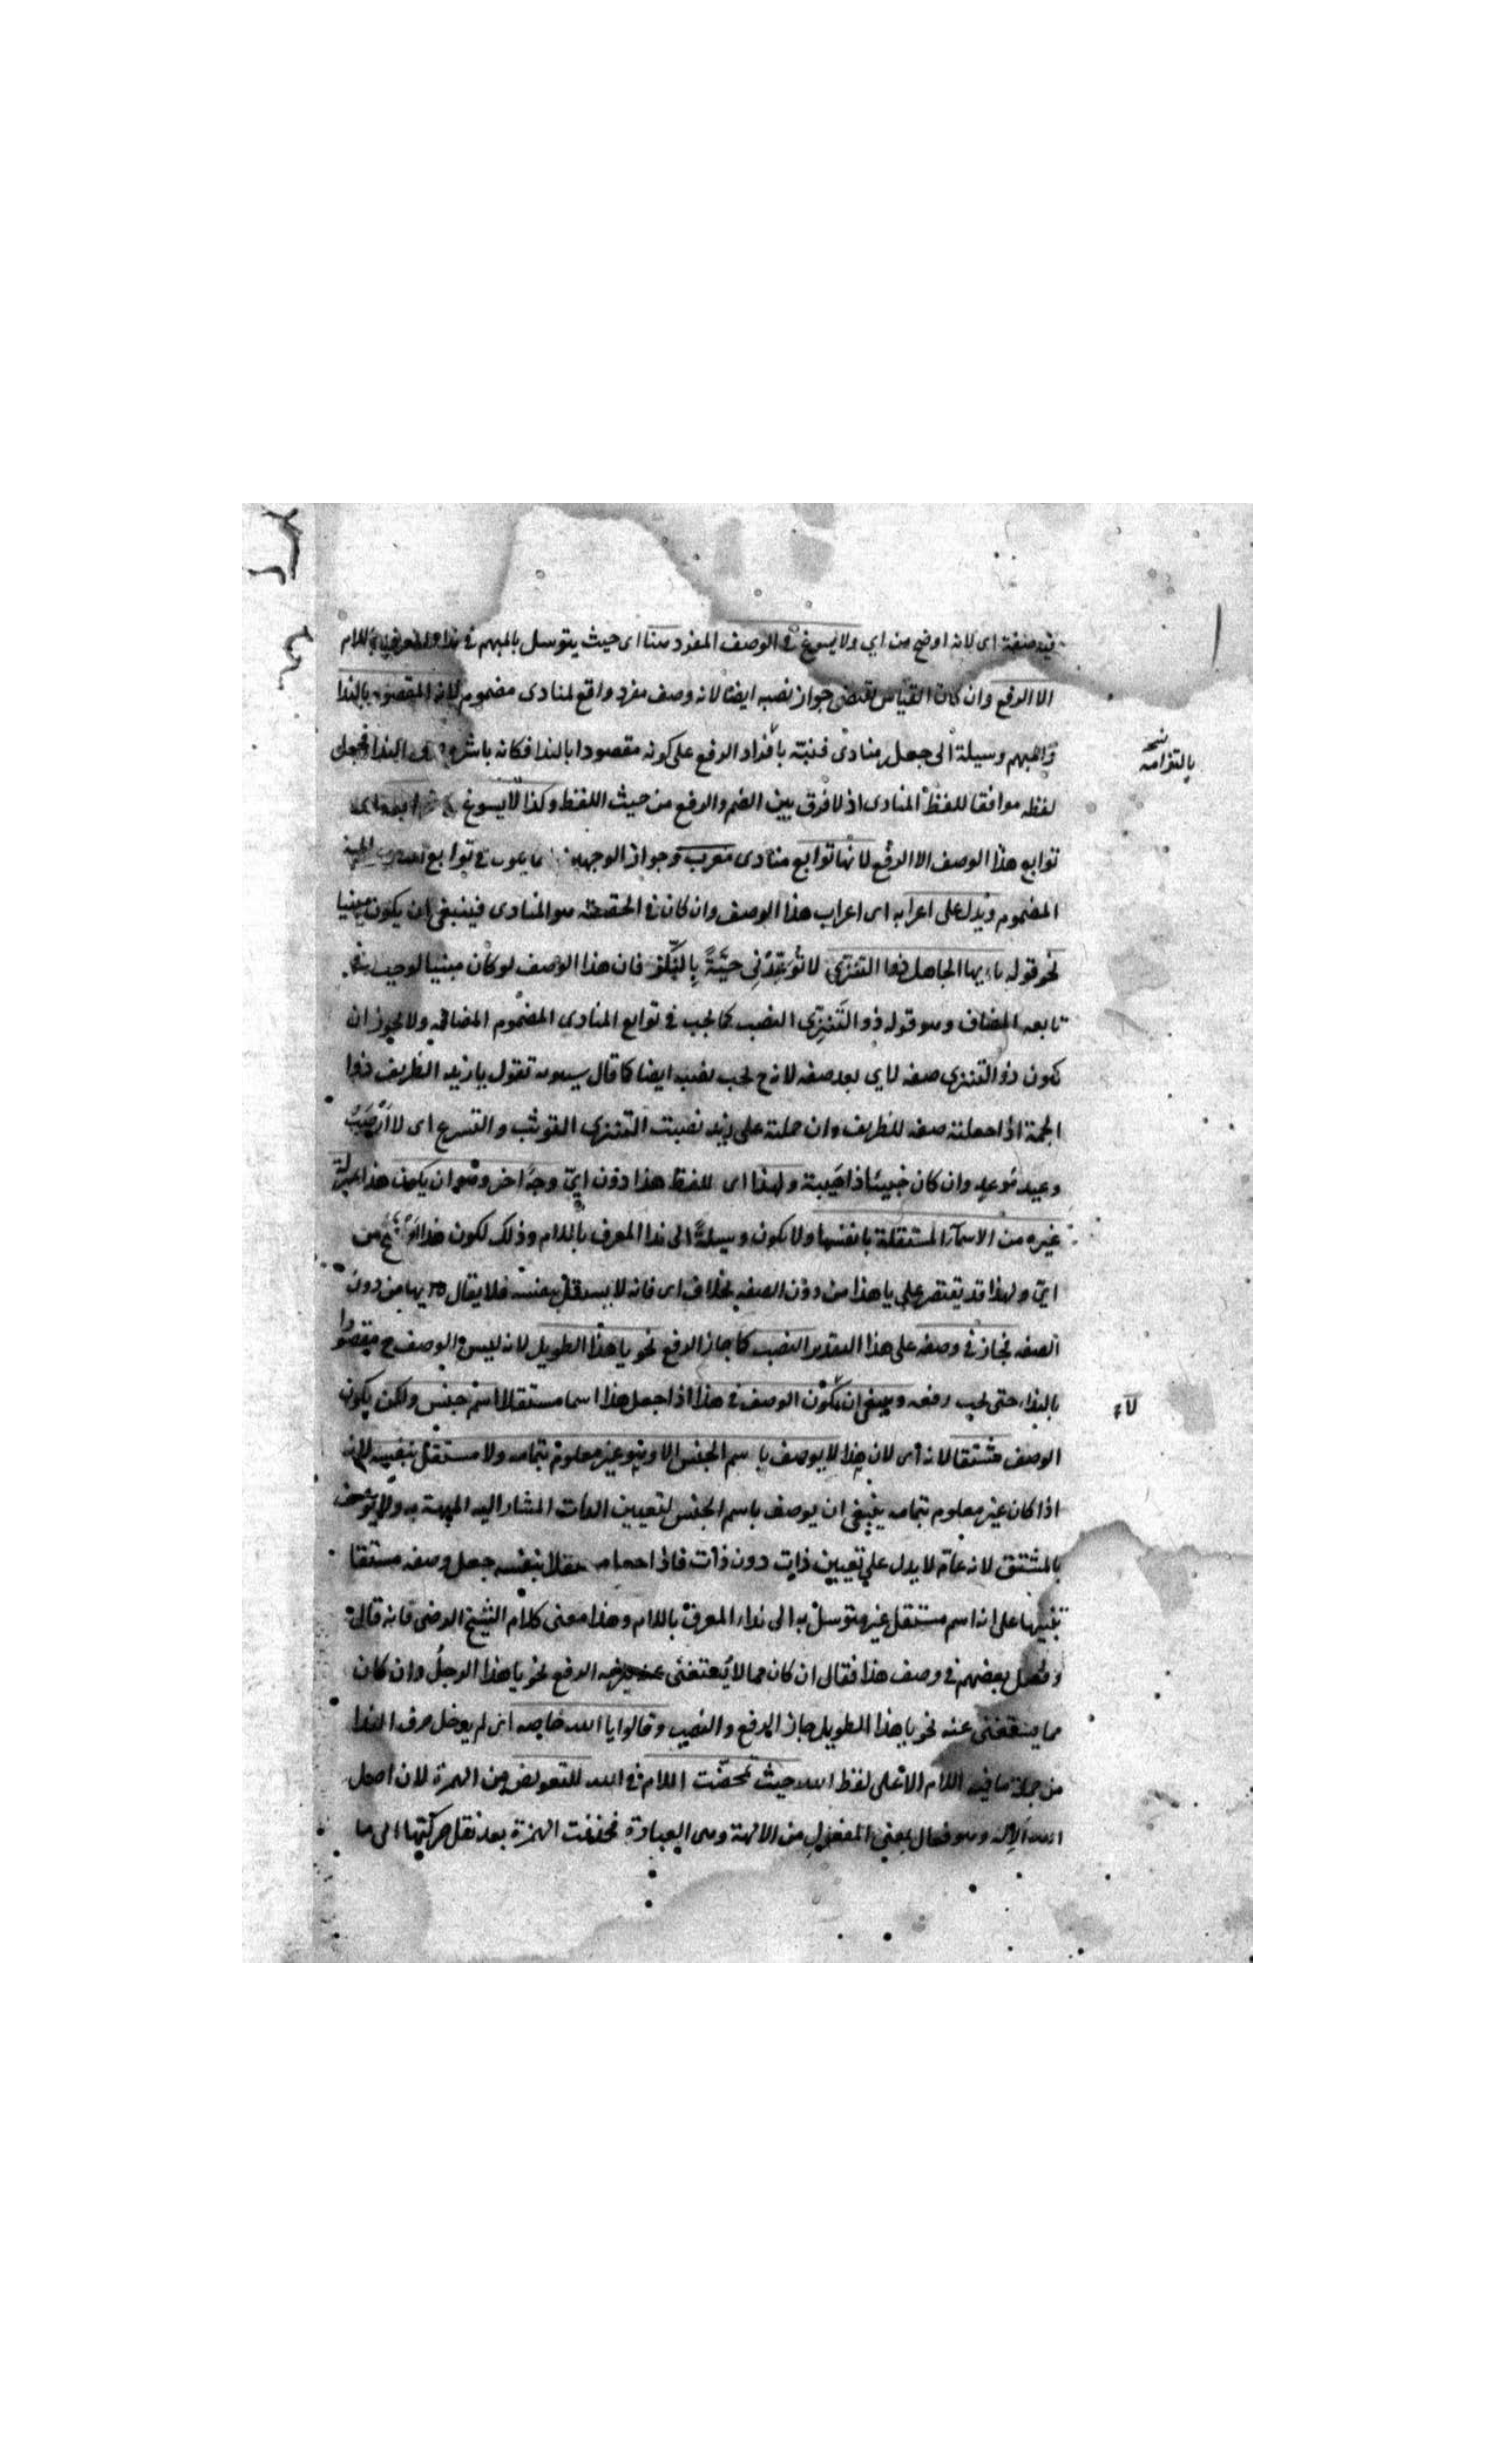 فيه صفة اى لانه اوضح من اي ولا يسوغ في الوصف المفرد هنا اى حيث يتوسل بالمبهم في ندا المعرف باللام
الا الرفع وان كان القياس يقتضى جواز نصبه ايضا لانه وصف مفرد واقع لمنادى مضموم لانه المقصود بالندا
والمبهم وسيلة الى جعله منادى فنبّه بالتزام الرفع على كونه مقصودا بالندا فكانه باشره حرف الندا فجعل
لفظه موافقا للفظ المنادى اذ لا فرق بين الضم والرفع من حيث اللفظ وكذا لا يسوغ
توابع هذا الوصف الا الرفع لانها توابع منادى معرب وجواز الوجهين انما يكون في توابع المنادى المبنى
المضموم ويدل على اعرابه اى اعراب هذا الوصف وان كان في الحقيقة هو المنادى فينبغى ان يكون مبنيا
نحو قوله يا ايها الجاهل ذو التنزى لا توعدنّى حيّةً بالنّكز فان هذا الوصف لو كان مبنيا لوجب في
تابعه المضاف وهو قوله ذو التنزّى النصب كما يجب في توابع المنادى المضموم المضافة ولا يجوز ان
يكون ذو التنزى صفة لاي بعد صفة لانه ح يجب نصبه ايضا كما قال سيبويه تقول يا زيد الظريف ذو
الجمة اذا جعلته صفة للظريف وان حملته على زيد نصبت التنزى التوثب والتسرع اى لا ارهب
وعيد موعد وان كان خبيثا ذا هيبة ولهذا اى للفظ هذا دون ايّ وجه اخر وهو ان يكون هذا بمنزلة
غيره من الاسمآء المستقلة بانفسها ولا يكون وسيلةً الى ندا المعرف باللام وذلك لكون هذا اوضح من
ايّ ولهذا قد يقتصر على يا هذا من دون الصفة بخلاف اى فانه لا يستقل بنفسه فلا يقال يا ايها من دون
الصفة فجاز في وصفه على هذا التقدير النصب كما جاز الرفع نحو يا هذا الطويل لانه ليس الوصف ح مقصودا
بالنداء حتى يجب رفعه وينبغى ان يكون الوصف في هذا اذا جعل هذا اسما مستقلا لا اسم جنس ولكن يكون
الوصف مشتقا لانه اى لان هذا لا يوصف باسم الجنس الا وهو غير معلوم بتمامه ولا مستقل بنفسه لانه
اذا كان غير معلوم بتمامه ينبغى ان يوصف باسم الجنس لتعيين الذات المشار اليه المبهمة به ولا يوصف
بالمشتق لانه عام لا يدل على تعيين ذات دون ذات فاذا جعل مستقلا بنفسه جعل وصفه مشتقا
تنبيها على انه اسم مستقل غير متوسل به الى نداء المعرف باللام وهذا معنى كلام الشيخ الرضى فانه قال
وفصل بعضهم في وصف هذا فقال ان كان مما لا يستغنى عنه الرفع نحو يا هذا الرجل وان كان
مما يستغنى عنه نحو يا هذا الطويل جاز الرفع والنصب وقالوا يا الله خاصة اى لم يدخل حرف الندا
من جملة ما فيه اللام الا على لفظ الله حيث تمحضت اللام في الله للتعويض من الهمزة لان اصل
الله الاله وهو فعال بمعنى المفعول من الالهة وهى العبادة فحذفت الهمزة بعد نقل حركتها الى ما
بالتزامه
لا